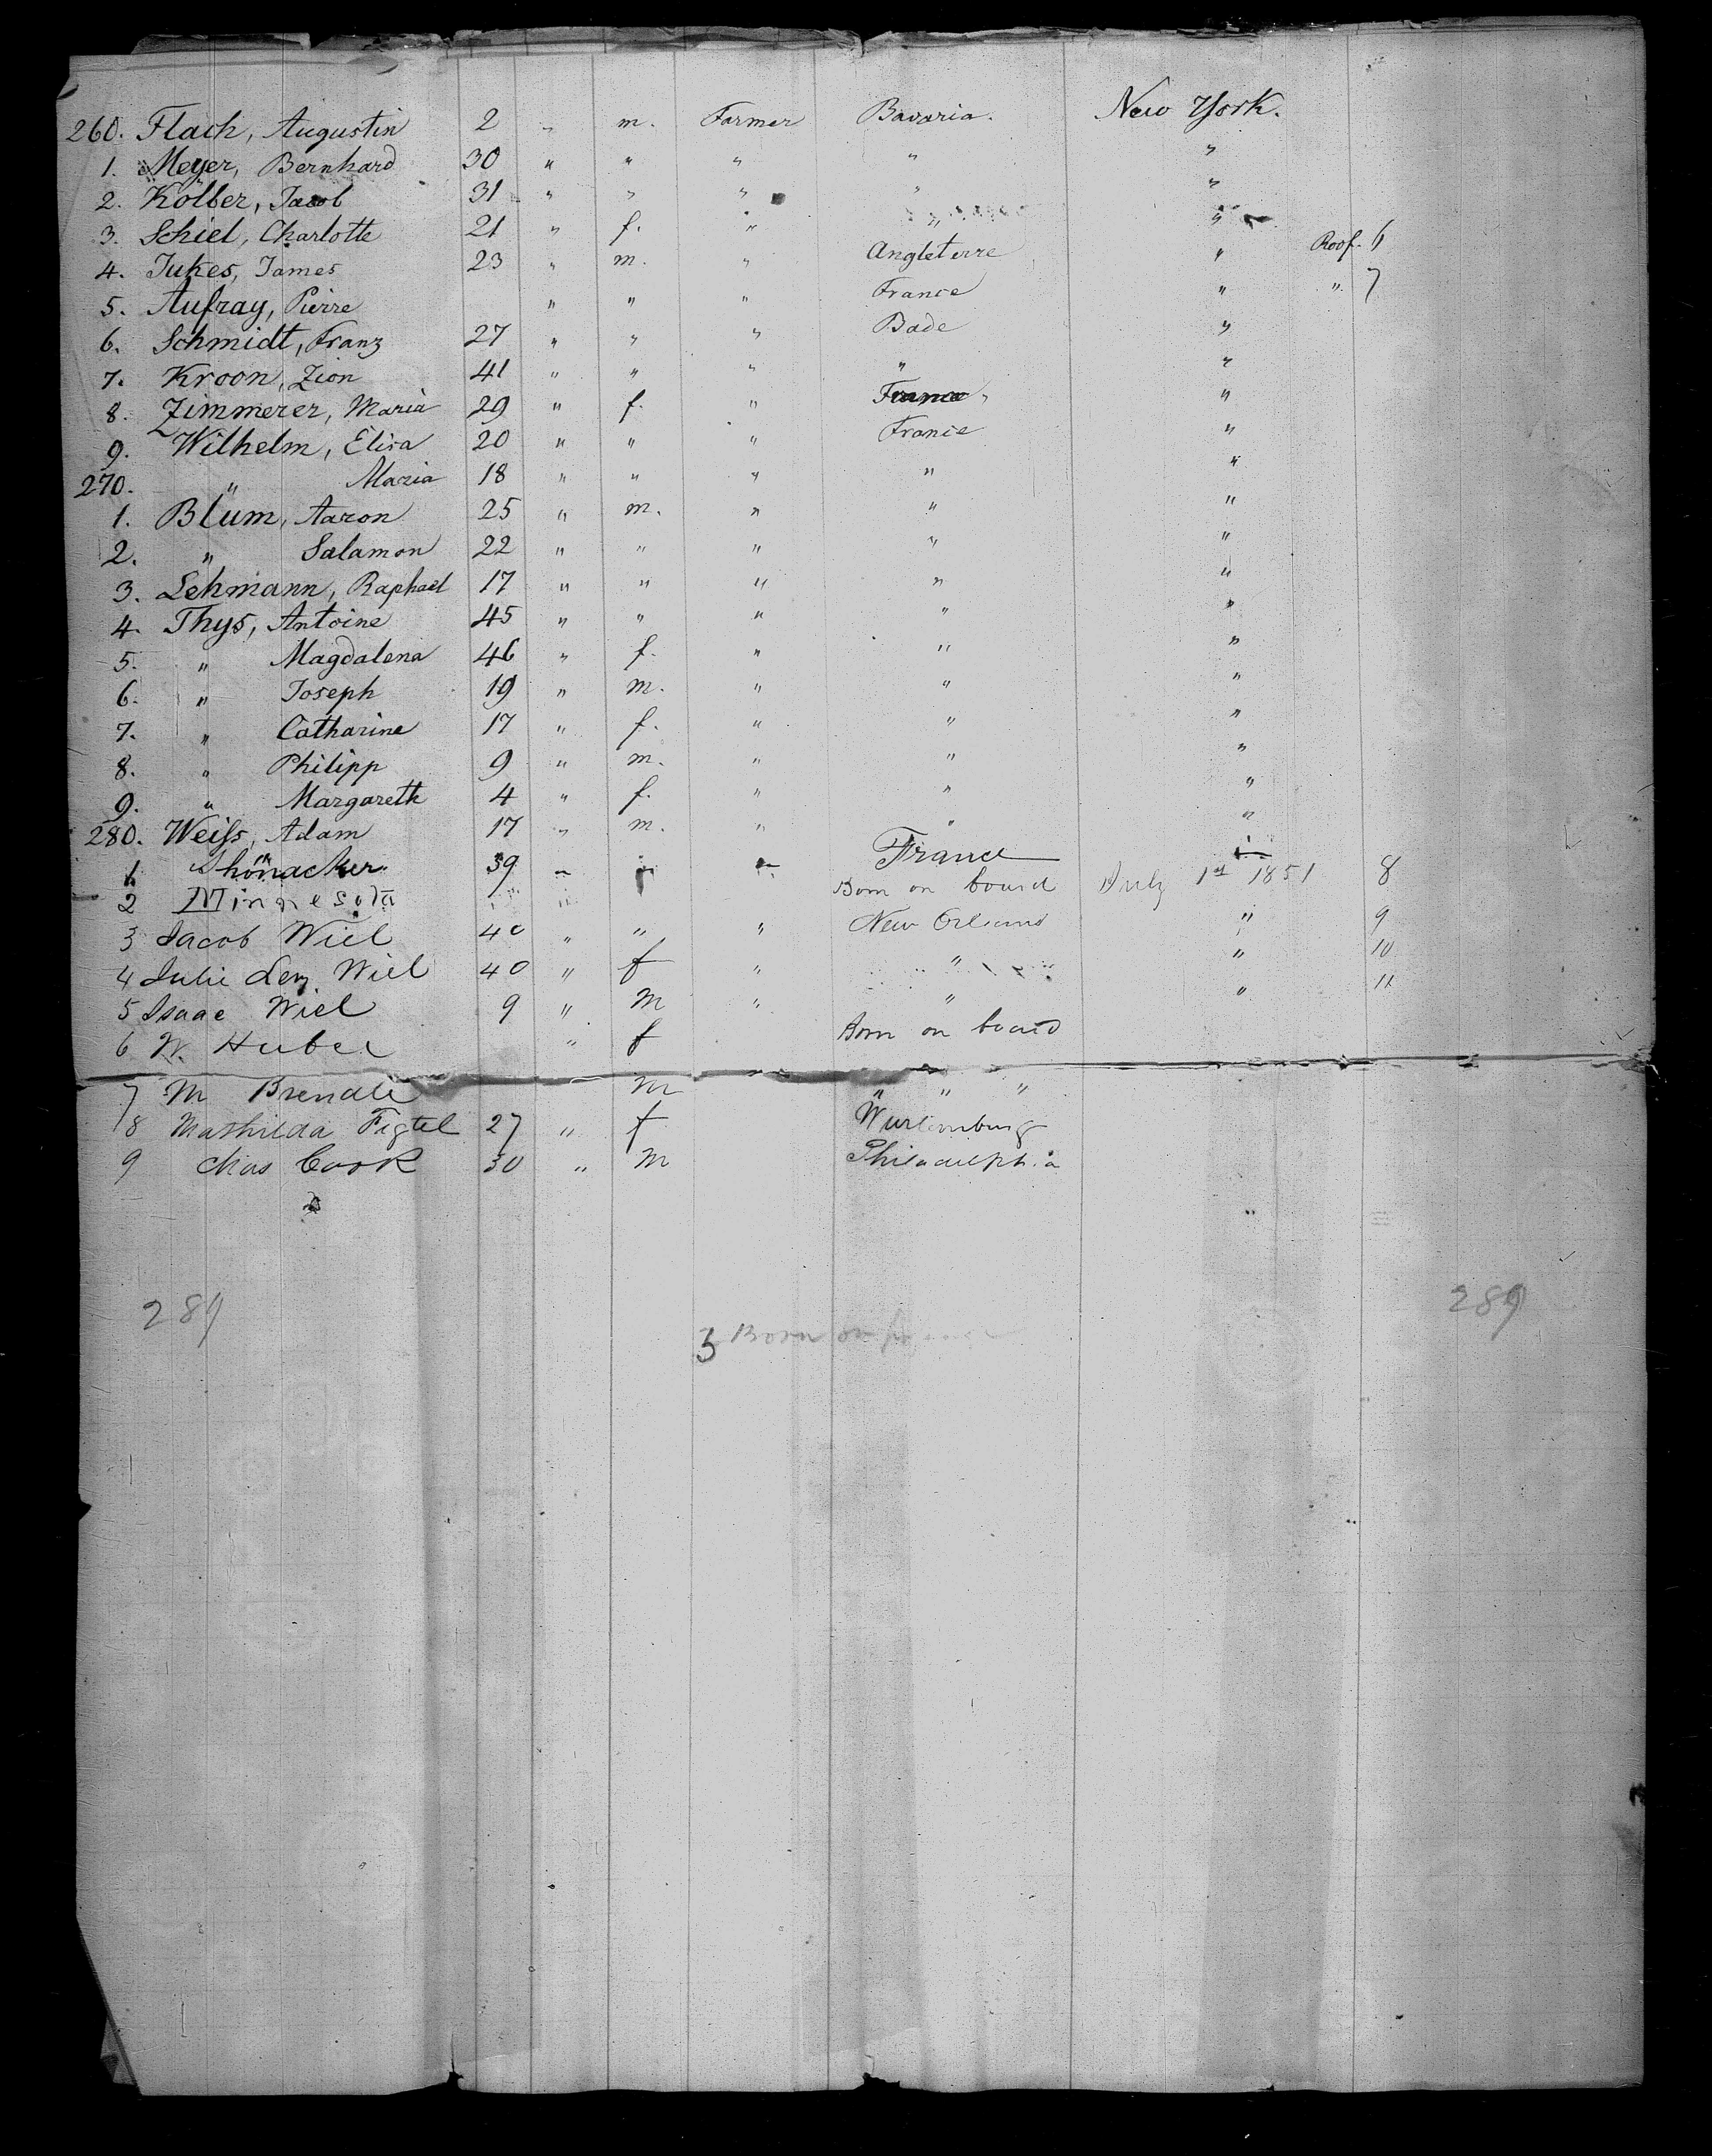 260. Flach, Augustin 2 " m. Farmer Bavaria. New York.
1. Meyer, Bernhard 30 " " " " "
2. Kölber, Jacob 31 " " " " "
3. Schiel, Charlotte 21 " f. " " "
4. Jukes, James 23 " m. " Angleterre " Roof. 6
5. Aufray, Pierre " " " France " " 7
6. Schmidt, Franz 27 " " " Bade "
7. Kroon, Zion 41 " " " " "
8. Zimmerer, Maria 29 " f. " France " "
9. Wilhelm, Elisa 20 " " " France "
270. " Maria 18 " " " " "
1. Blum, Aaron 25 " m. " " "
2. " Salamon 22 " " " " "
3. Lehmann, Raphael 17 " " " " "
4. Thys, Antoine 45 " " " " "
5. " Magdalena 46 " f. " " "
6. " Joseph 19 " m. " " "
7. " Catharine 17 " f. " " "
8. " Philipp 9 " m. " " "
9. " Margareth 4 " f. " " "
280. Weiss, Adam 17 " m. " " "
1 Shönacker 39 " " " France
2 Minnesota Born on board July 1st 1851 8
3 Jacob Wiel 40 " " " New Orleans " 9
4 Julie Wiel 40 " f " " " 10
5 Isaac Wiel 9 " M " " " 11
6 W. Huber " f Born on board
7 M Brendle M " " "
8 Mathilda Figtel 27 " f Wurtemburg
9 Chas Cook 30 " M Philadelphia
289 289
3 Born on